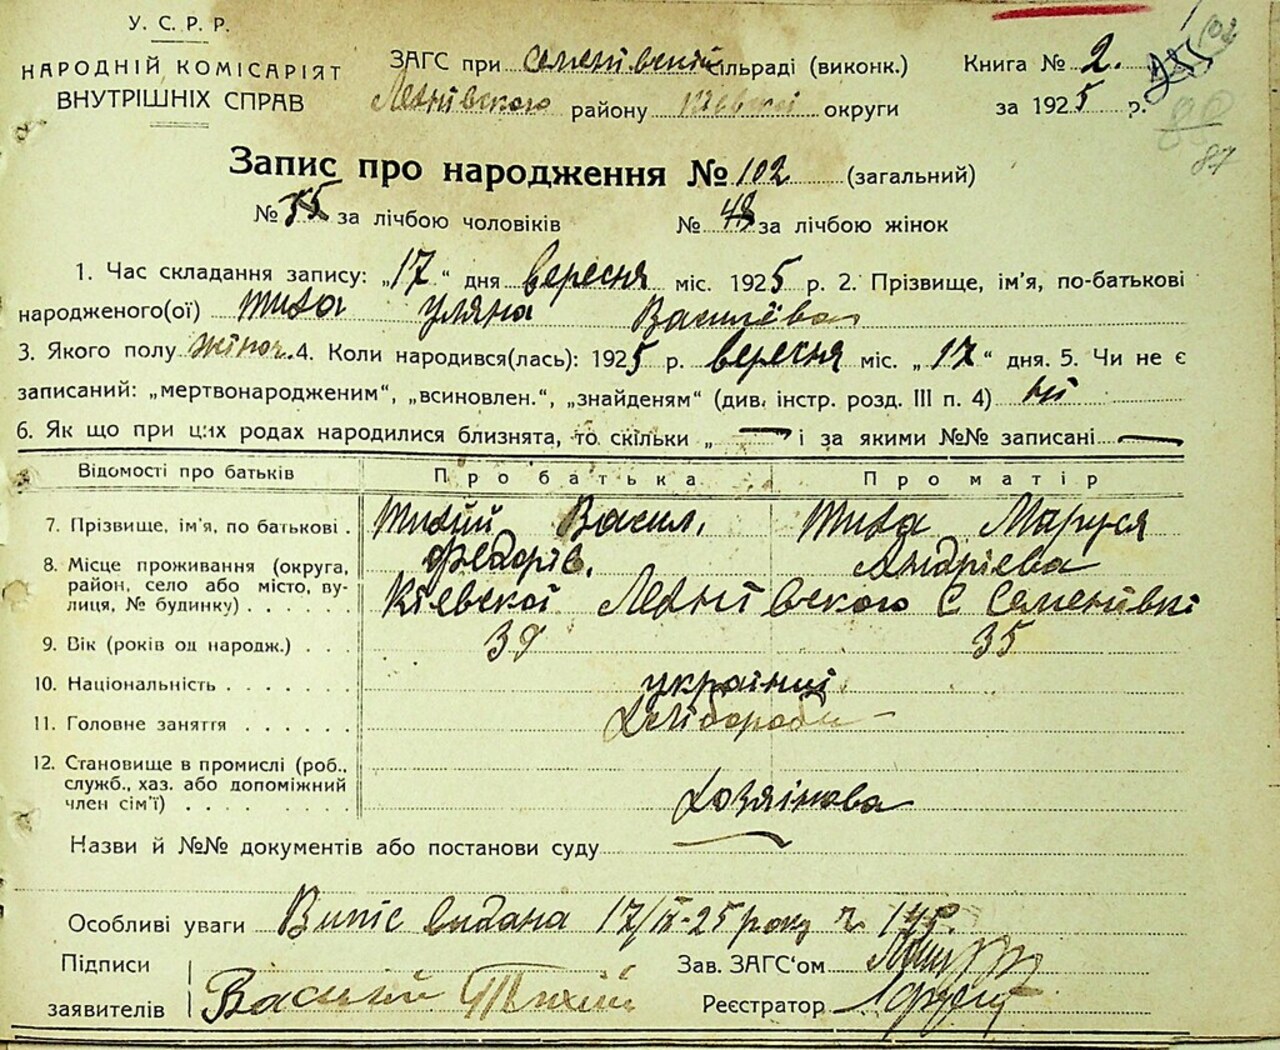 У. С. Р. Р.
НАРОДНІЙ КОМІСАРІЯТ
ВНУТРІШНІХ СПРАВ
ЗАГС при Семенівській сільраді (виконк.)
району округи
Книга № 2.
за 1925 р.
87
Запис про народження № 102 (загальний)
№ 55 за лічбою чоловіків № 48 за лічбою жінок
1. Час складання запису: „17“ дня вересня міс. 1925 р. 2. Прізвище, ім'я, по-батькові
народженого(ої) Тиха Уляна Василёва
3. Якого полу жіноч. 4. Коли народився(лась): 1925 р. вересня міс. „17“ дня. 5. Чи не є
записаний: „мертвонародженим“, „всиновлен.“, „знайденям“ (див. інстр. розд. III п. 4) ні
6. Як що при цих родах народилися близнята, то скільки „ — і за якими №№ записані —
Відомості про батьків Про батька Про матір
7. Прізвище, ім'я, по батькові . Тихий Васил. Тиха Маруся
Федорів. Андрієва
8. Місце проживання (округа,
район, село або місто, ву-
лиця, № будинку) . . . . . . Кіевскої с Семенівкі
9. Вік (років од народж.) . . . 39 35
10. Національність . . . . . . . українці
11. Головне заняття . . . . . . Хлібороби
12. Становище в промислі (роб.,
служб., хаз. або допоміжний
член сім'ї) . . . . . . . . Хозяінова
Назви й №№ документів або постанови суду
Особливі уваги Випіс видана 17/IX-25 року
Підписи
заявителів Василій Тихий
Зав. ЗАГС'ом
Реєстратор